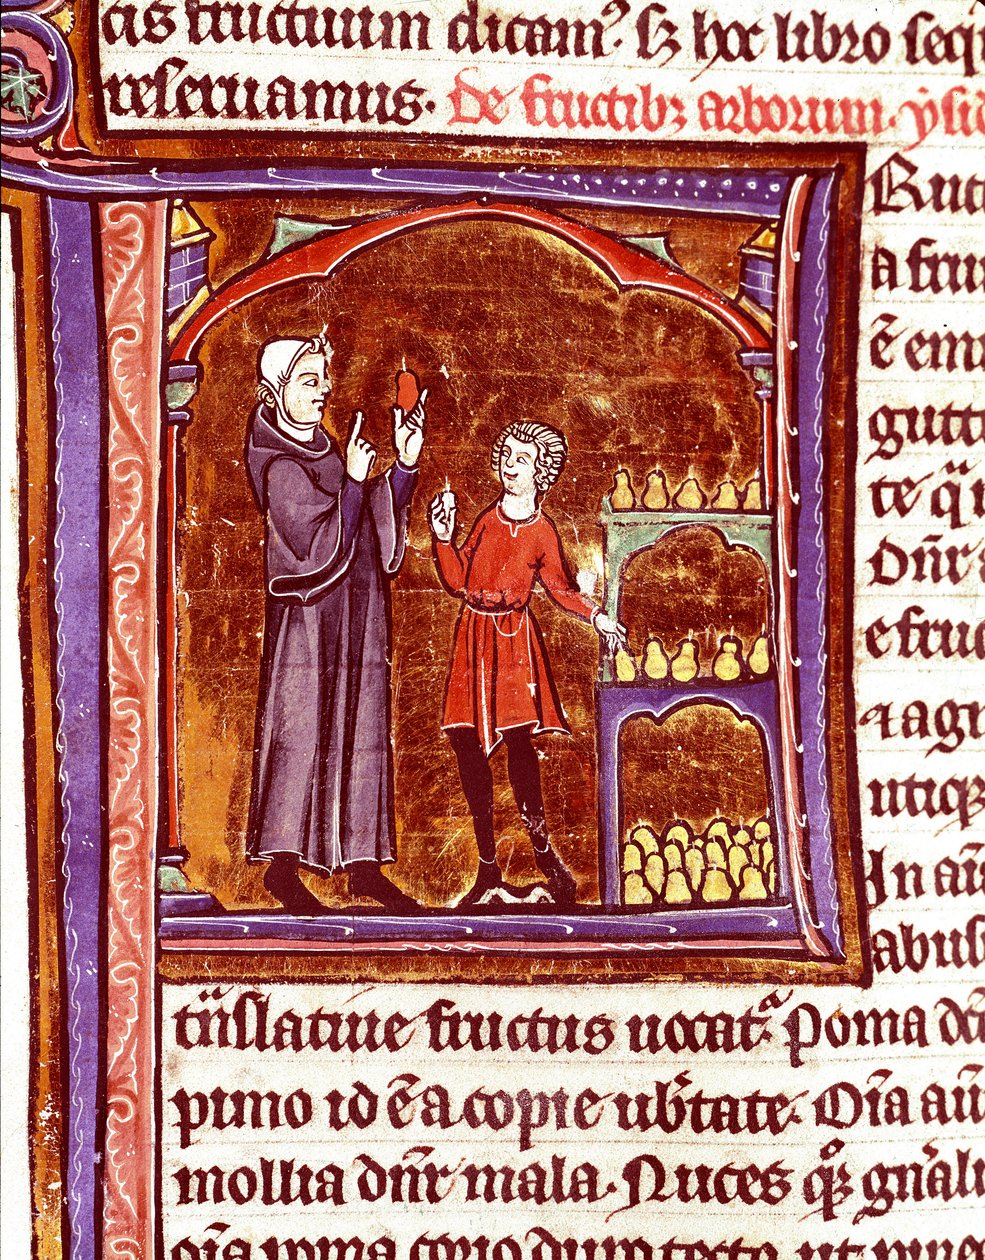 cis fructuum dicamꝰ. sꝫ hoc libro seq
reseruamus. De fructibꝫ arborum. ysid
Ruc
a fru
ē em
gutt
te q̄
Dn̄r
e fruc
⁊ agr
utiqꝫ
In aū
abus
tūslatiue fructus uocatᷓ. Poma dc̄
pimo id ē a copie ub̄tate. Oīa aū
mollia dn̄r mala. Nuces gn̄ali
oīa poma corio